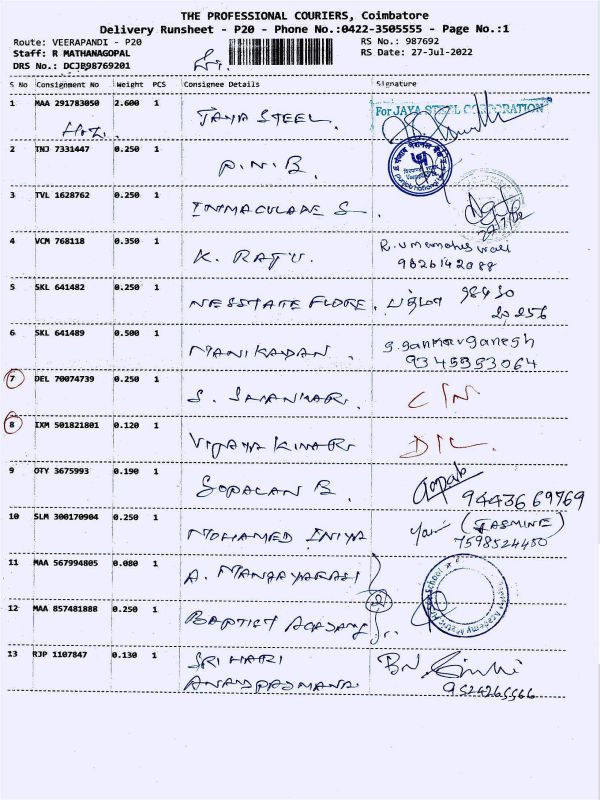 THE PROFESSIONAL COURIERS, Coimbatore
Delivery Runsheet - P20 - Phone No.:0422-3505555 - Page No.:1
Route: VEERAPANDI - P20 RS No.: 987692
Staff: R MATHANAGOPAL RS Date: 27-Jul-2022
DRS No.: DCJB98769201
S No Consignment No Weight PCS Consignee Details Signature
1 MAA 291783050 2.600 1 JAYA STEEL. For JAYA STEEL CORPORATION
2 TNJ 7331447 0.250 1 P.N.B.
3 TVL 1628762 0.250 1 INMACULADE S.
4 VCM 768118 0.350 1 K. RAJU. R. Umamaheswari
9626142088
5 SKL 641482 0.250 1 பத்மா 98430
20256
6 SKL 641489 0.500 1 MANIKADAN. S. Sankar ganesh
9345953064
7 DEL 70074739 0.250 1 S. C/N
8 IXM 501821801 0.120 1 VIJAYA KUMARI D/L.
9 OTY 3675993 0.190 1 GOPALAN B. Gopal
94436 69769
10 SLM 300170904 0.250 1 MOHAMED INIYA (JASMINE)
7598524450
11 MAA 567994805 0.080 1 A. MANGAYARASI
12 MAA 857481888 0.250 1 BAPTIST ACADAMY 2
13 RJP 1107847 0.130 1 SRI HARI
9524265566